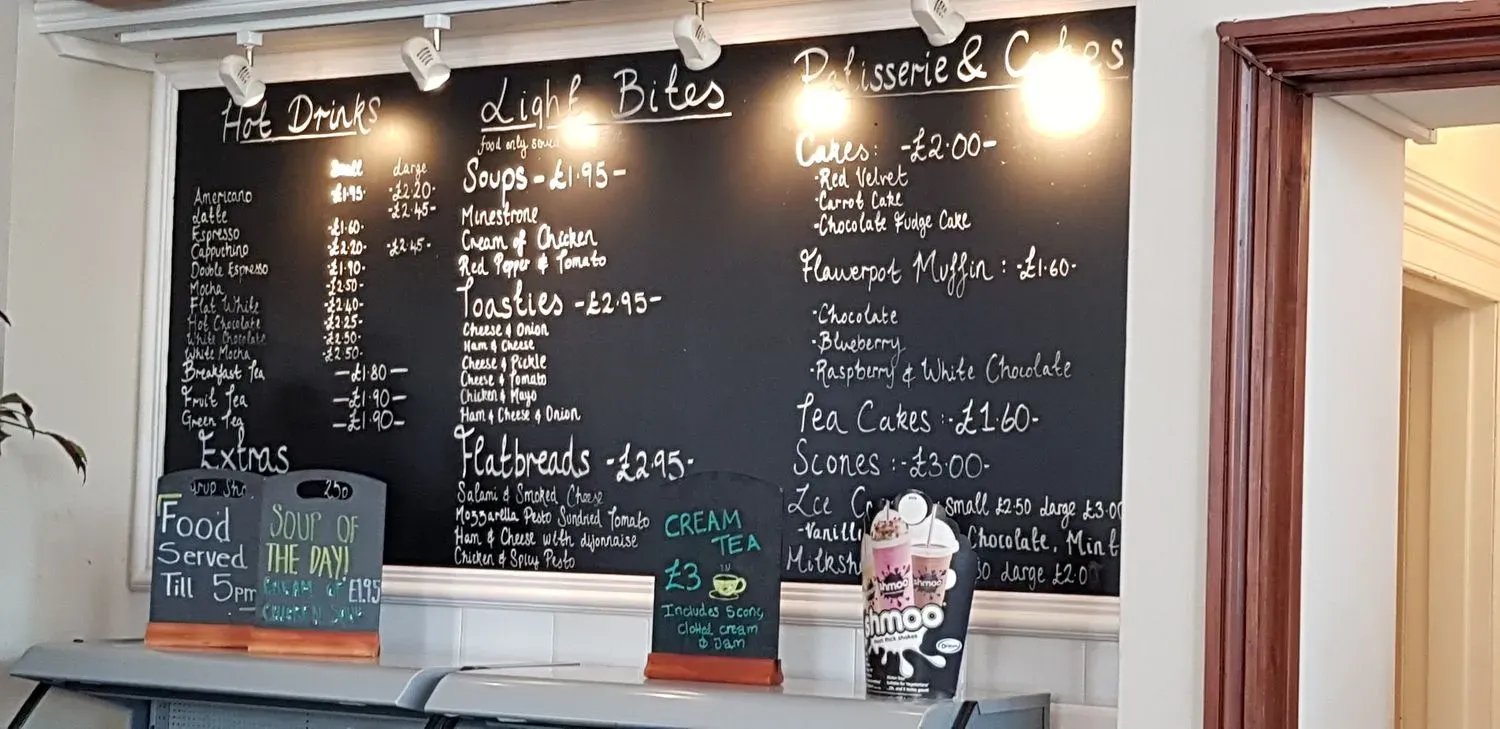 Hot Drinks
Small Large
Americano -£1.95- -£2.20-
Latte -£2.45-
Espresso -£1.60-
Cappuchino -£2.20- -£2.45-
Double Espresso -£1.90-
Mocha -£2.50-
Flat White -£2.40-
Hot Chocolate -£2.25-
White Chocolate -£2.50-
White Mocha -£2.50-
Breakfast Tea -£1.80-
Fruit Tea -£1.90-
Green Tea -£1.90-
Extras
25p
Light Bites
food only
Soups -£1.95-
Minestrone
Cream of Chicken
Red Pepper & Tomato
Toasties -£2.95-
Cheese & Onion
Ham & Cheese
Cheese & Pickle
Cheese & Tomato
Chicken & Mayo
Ham & Cheese & Onion
Flatbreads -£2.95-
Salami & Smoked Cheese
Mozzarella Pesto Sundried Tomato
Ham & Cheese with dijonnaise
Chicken & Spicy Pesto
Patisserie & Cakes
Cakes: -£2.00-
-Red Velvet
-Carrot Cake
-Chocolate Fudge Cake
Flowerpot Muffin : -£1.60-
-Chocolate
-Blueberry
-Raspberry & White Chocolate
Tea Cakes :-£1.60-
Scones :-£3.00-
Ice small £2.50 Large £3.00
Chocolate, Mint
Large £2.0
Food
Served
Till 5pm
SOUP OF
THE DAY!
CREAM OF £1.95
CHICKEN SOUP
CREAM
TEA
£3
Includes Scone,
Clotted cream
& Jam
shmoo
shmoo
shmoo
thick shakes